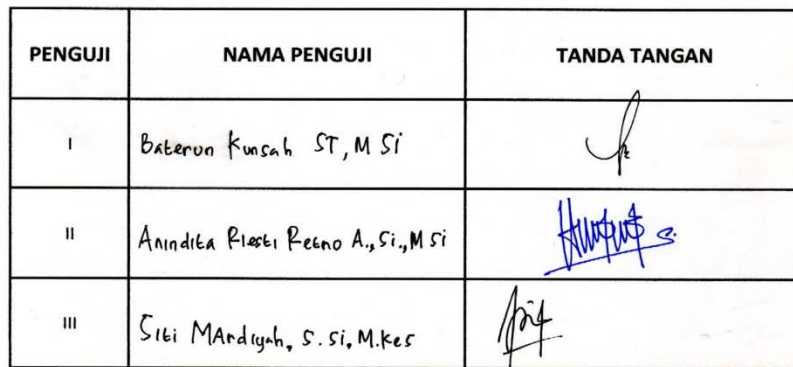 PENGUJI NAMA PENGUJI TANDA TANGAN
I Baterun Kunsah ST, M Si
II Anindita Riesti Retno A., Si., M Si
III Siti MArdiyah, S. Si, M. Kes